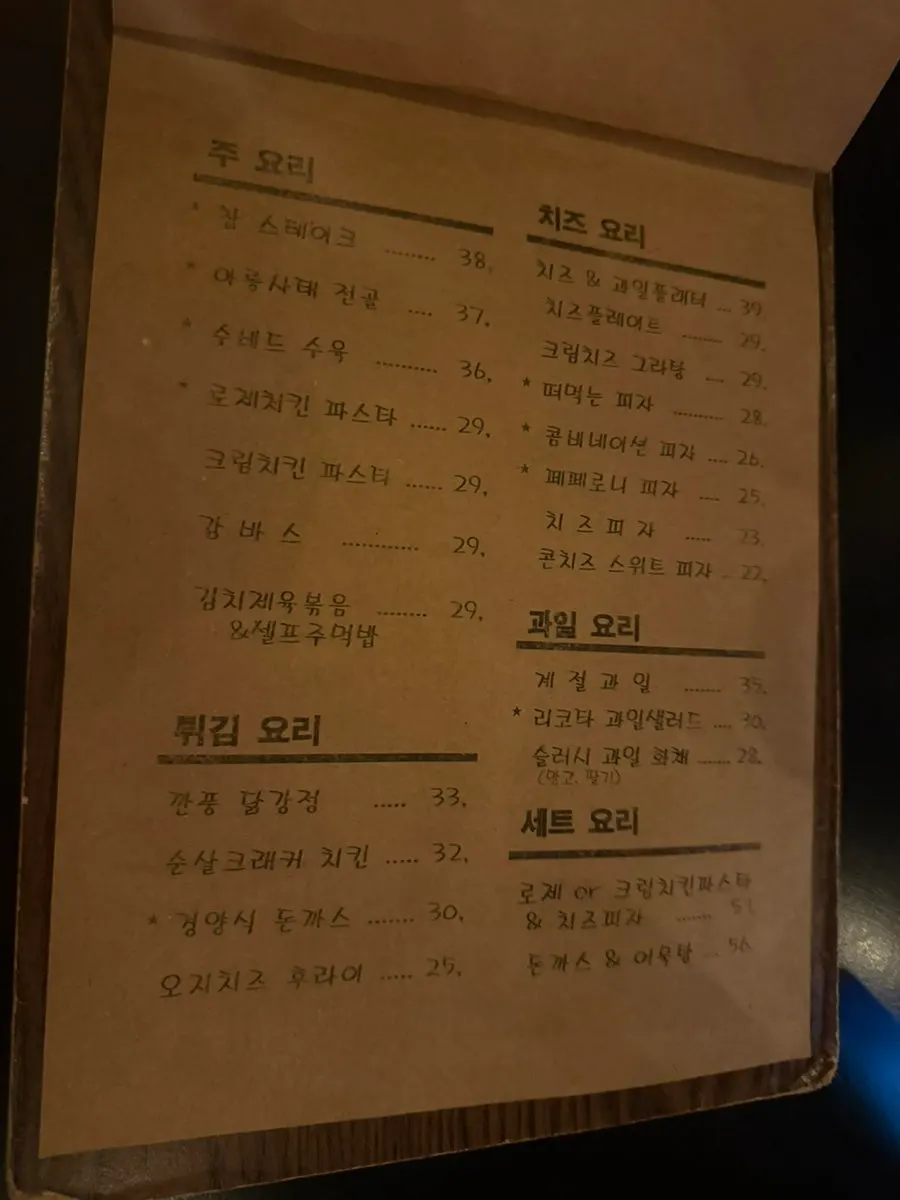 주 요리
* 찹 스테이크 ........ 38.
* 아롱사태 전골 .... 37.
* 수비드 수육 .......... 36.
* 로제치킨 파스타 ...... 29.
크림치킨 파스타 ...... 29.
감 바 스 ............ 29.
김치제육볶음 ........ 29.
&셀프주먹밥
튀김 요리
깐풍 닭강정 ..... 33.
순살크래커 치킨 ..... 32.
* 경양식 돈까스 ....... 30.
오지치즈 후라이 ..... 25.
치즈 요리
치즈 & 과일플레터 ... 39.
치즈플레이트 ........ 29.
크림치즈 그라탕 .... 29.
* 떠먹는 피자 .......... 28.
* 콤비네이션 피자 .... 26.
* 페페로니 피자 .... 25.
치 즈 피 자 ..... 23.
콘치즈 스위트 피자 .. 22.
과일 요리
계 절 과 일 ....... 35.
* 리코타 과일샐러드 .... 30.
슬러시 과일 화채 ....... 28.
(망고, 딸기)
세트 요리
로제 or 크림치킨파스타
& 치즈피자 ....... 51.
돈까스 & 어묵탕 ... 50.